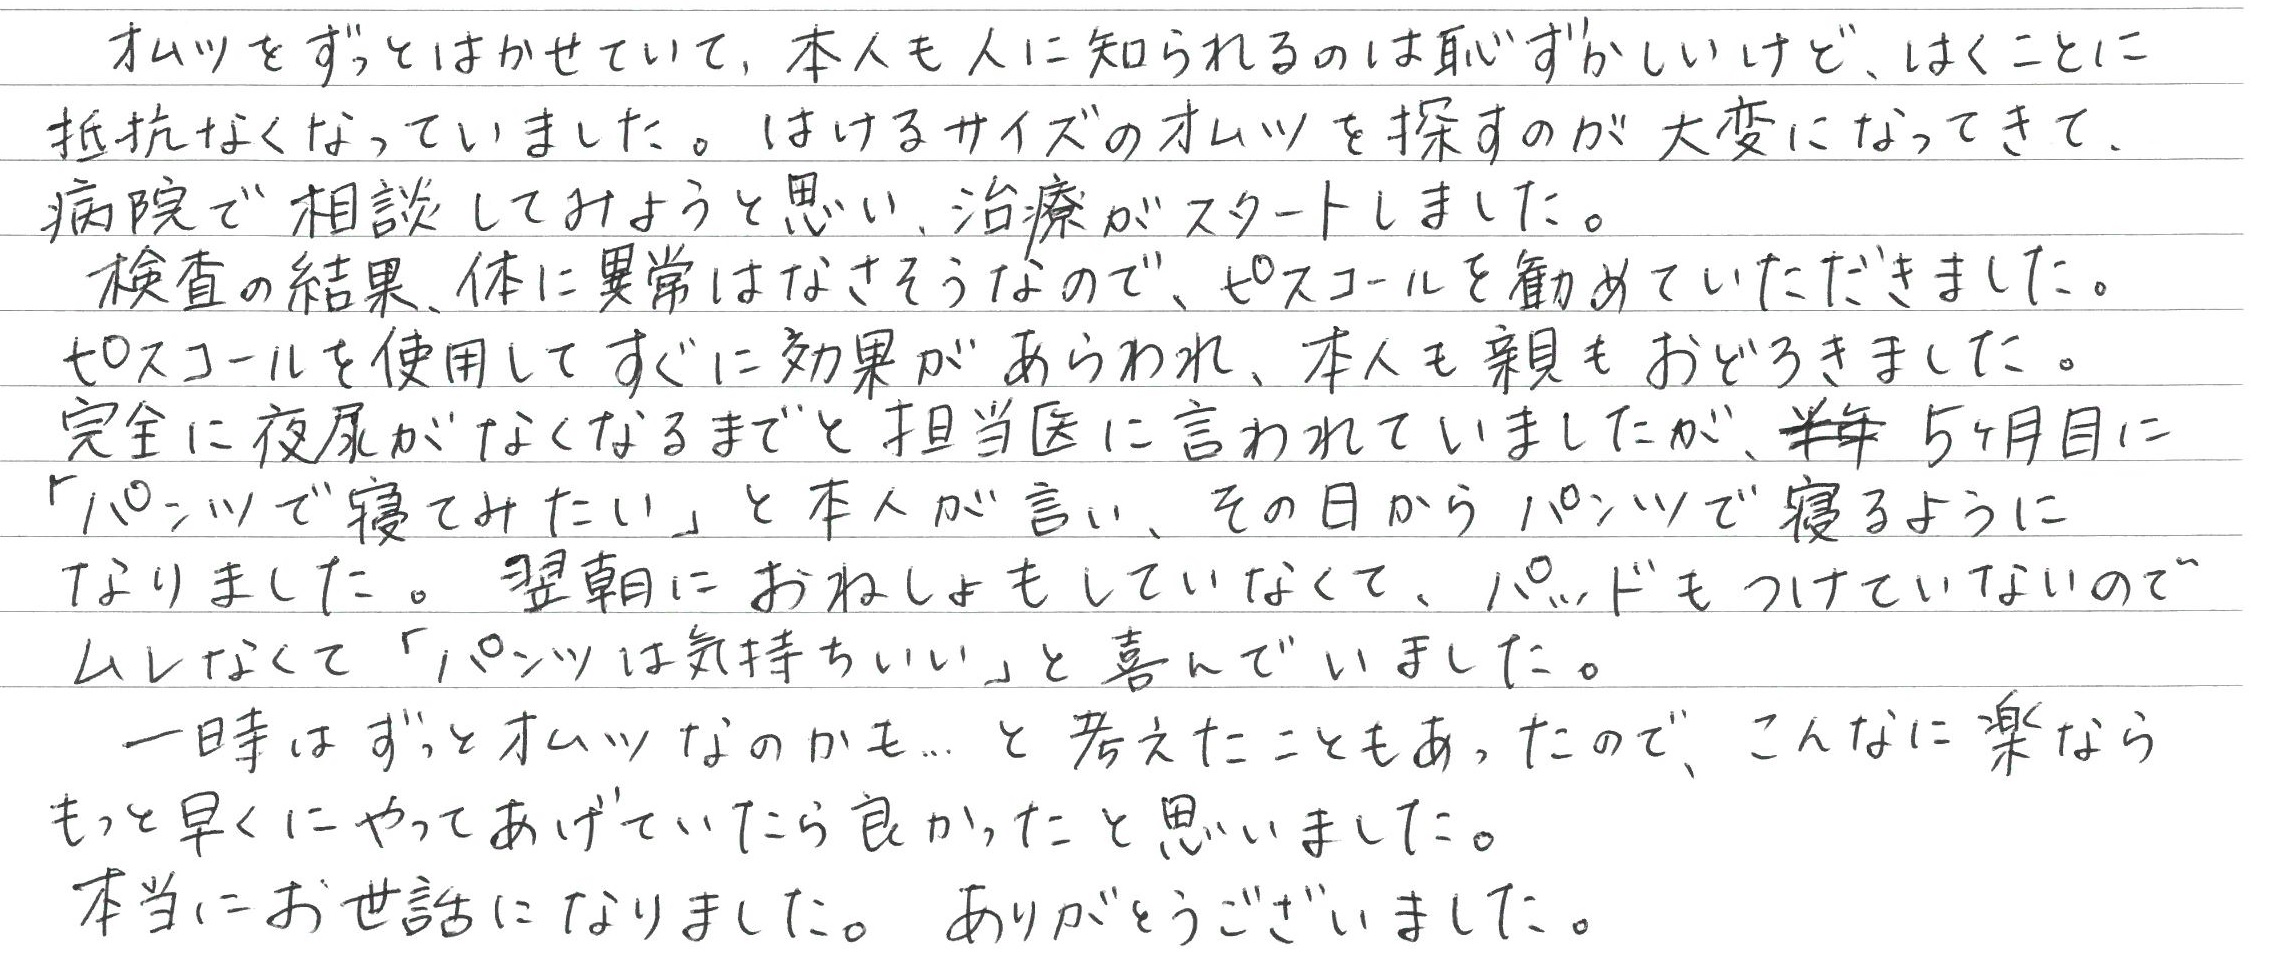 オムツをずっとはかせていて、本人も人に知られるのは恥ずかしいけど、はくことに
抵抗なくなっていました。はけるサイズのオムツを探すのが大変になってきて、
病院で相談してみようと思い、治療がスタートしました。
検査の結果、体に異常はなさそうなので、ピスコールを勧めていただきました。
ピスコールを使用してすぐに効果があらわれ、本人も親もおどろきました。
完全に夜尿がなくなるまでと担当医に言われていましたが、半年 5ヶ月目に
「パンツで寝てみたい」と本人が言い、その日からパンツで寝るように
なりました。翌朝におねしょもしていなくて、パッドもつけていないので
ムレなくて「パンツは気持ちいい」と喜んでいました。
一時はずっとオムツなのかも…と考えたこともあったので、こんなに楽なら
もっと早くにやってあげていたら良かったと思いました。
本当にお世話になりました。ありがとうございました。